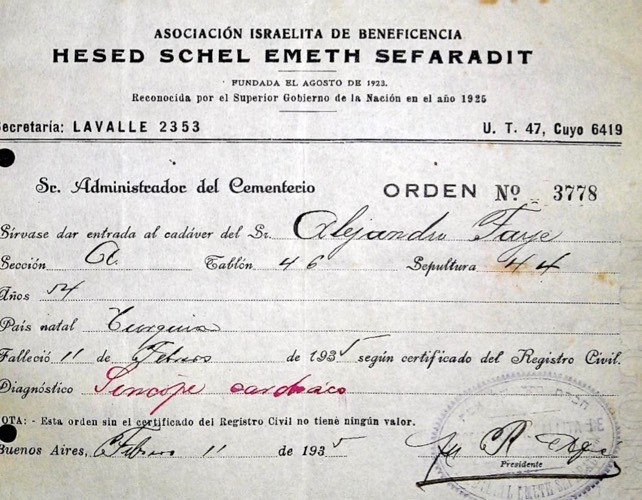 ASOCIACIÓN ISRAELITA DE BENEFICENCIA
HESED SCHEL EMETH SEFARADIT
FUNDADA EL AGOSTO DE 1923.
Reconocida por el Superior Gobierno de la Nación en el año 1926
Secretaría: LAVALLE 2353 U. T. 47, Cuyo 6419
Sr. Administrador del Cementerio ORDEN Nº 3778
Sírvase dar entrada al cadáver del Sr. Alejandro
Sección A. Tablón 46 Sepultura 44
Años 54
País natal Turquia
Falleció 11 de Febrero de 1935 según certificado del Registro Civil.
Diagnóstico Sincope cardiaco
NOTA: - Esta orden sin el certificado del Registro Civil no tiene ningún valor.
Buenos Aires, Febrero 11 de 1935
Presidente